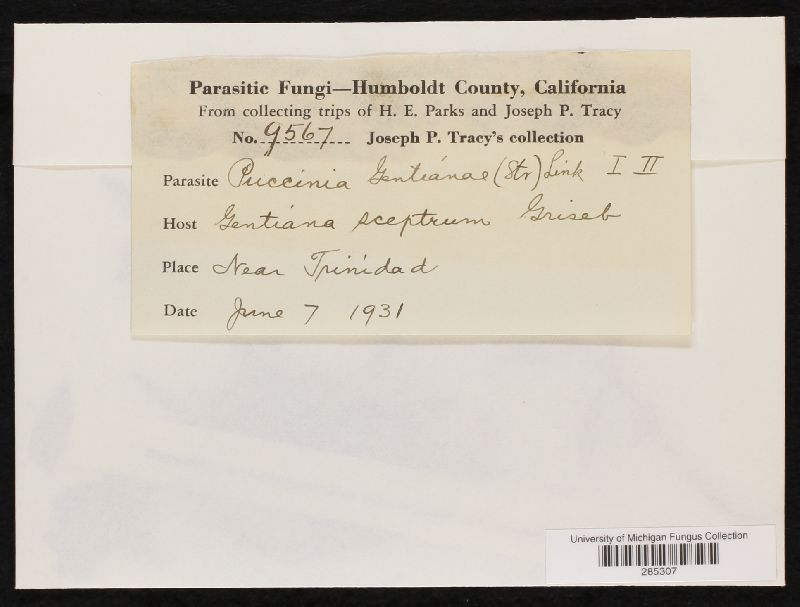 Parasitic Fungi—Humboldt County, California
From collecting trips of H. E. Parks and Joseph P. Tracy
No. 9567 Joseph P. Tracy's collection
Parasite Puccinia Gentianae (Str) Link I II
Host Gentiana sceptrum Griseb
Place Near Trinidad
Date June 7 1931
University of Michigan Fungus Collection
285307